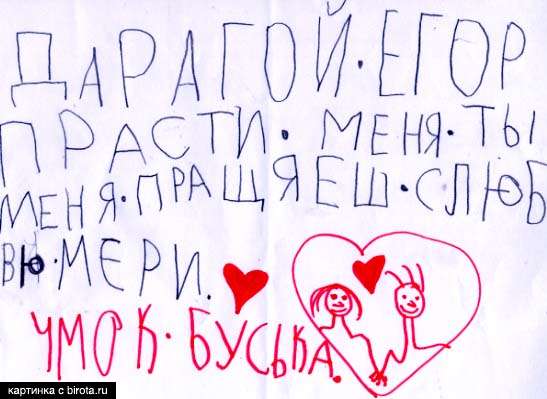 ДАРАГОЙ·ЕГОР
ПРАСТИ·МЕНЯ·ТЫ
МЕНЯ·ПРАЩЯЕШ·СЛЮБ
ВЮ·МЕРИ.
ЧМОК·БУСЬКА.
картинка с birota.ru